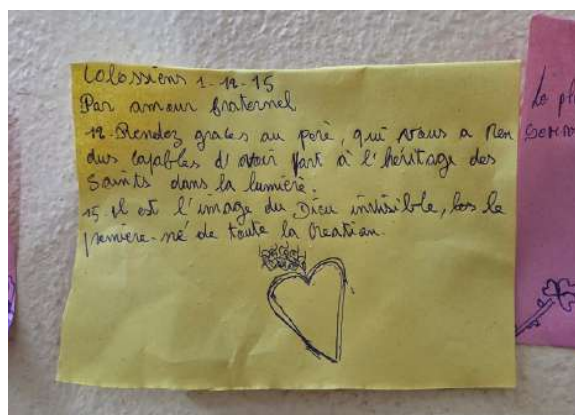 Colossiens 1-12-15
Par amour fraternel
12-Rendez graces au perè, qui vous a Ren
dus capables d'avoir part à l'héritage des
Saints dans la lumière.
15. il est l'image du Dieu invisible, le
première-né de toute la Creation.
La